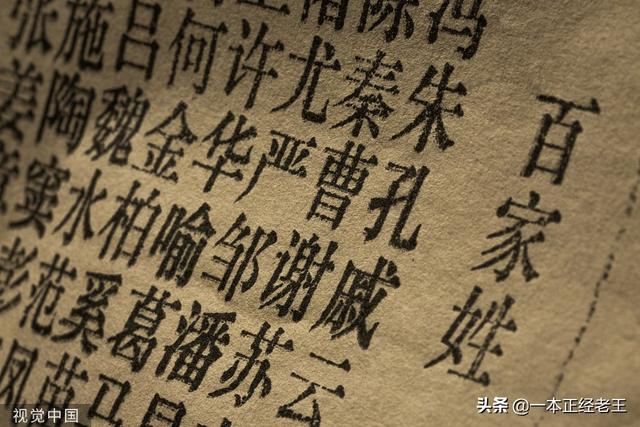 百家姓
冯陈褚
朱秦尤许何吕施张
孔曹严华金魏陶姜
戚谢邹喻柏水窦章
云苏潘葛奚范彭
昌马苗凤
视觉中国
头条 @一本正经老王